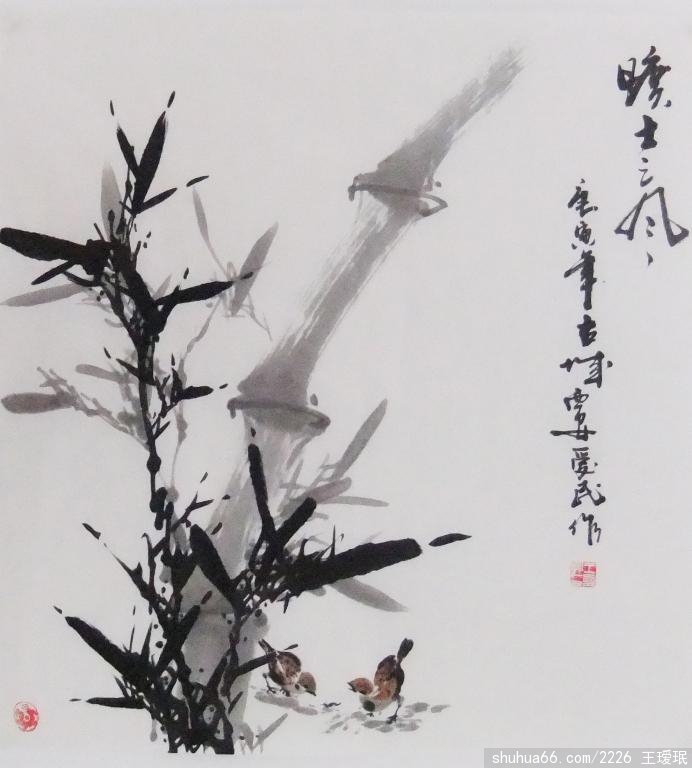 士之风
庚寅年古城爱民作
shuhua66.com/2226 王瑷珉